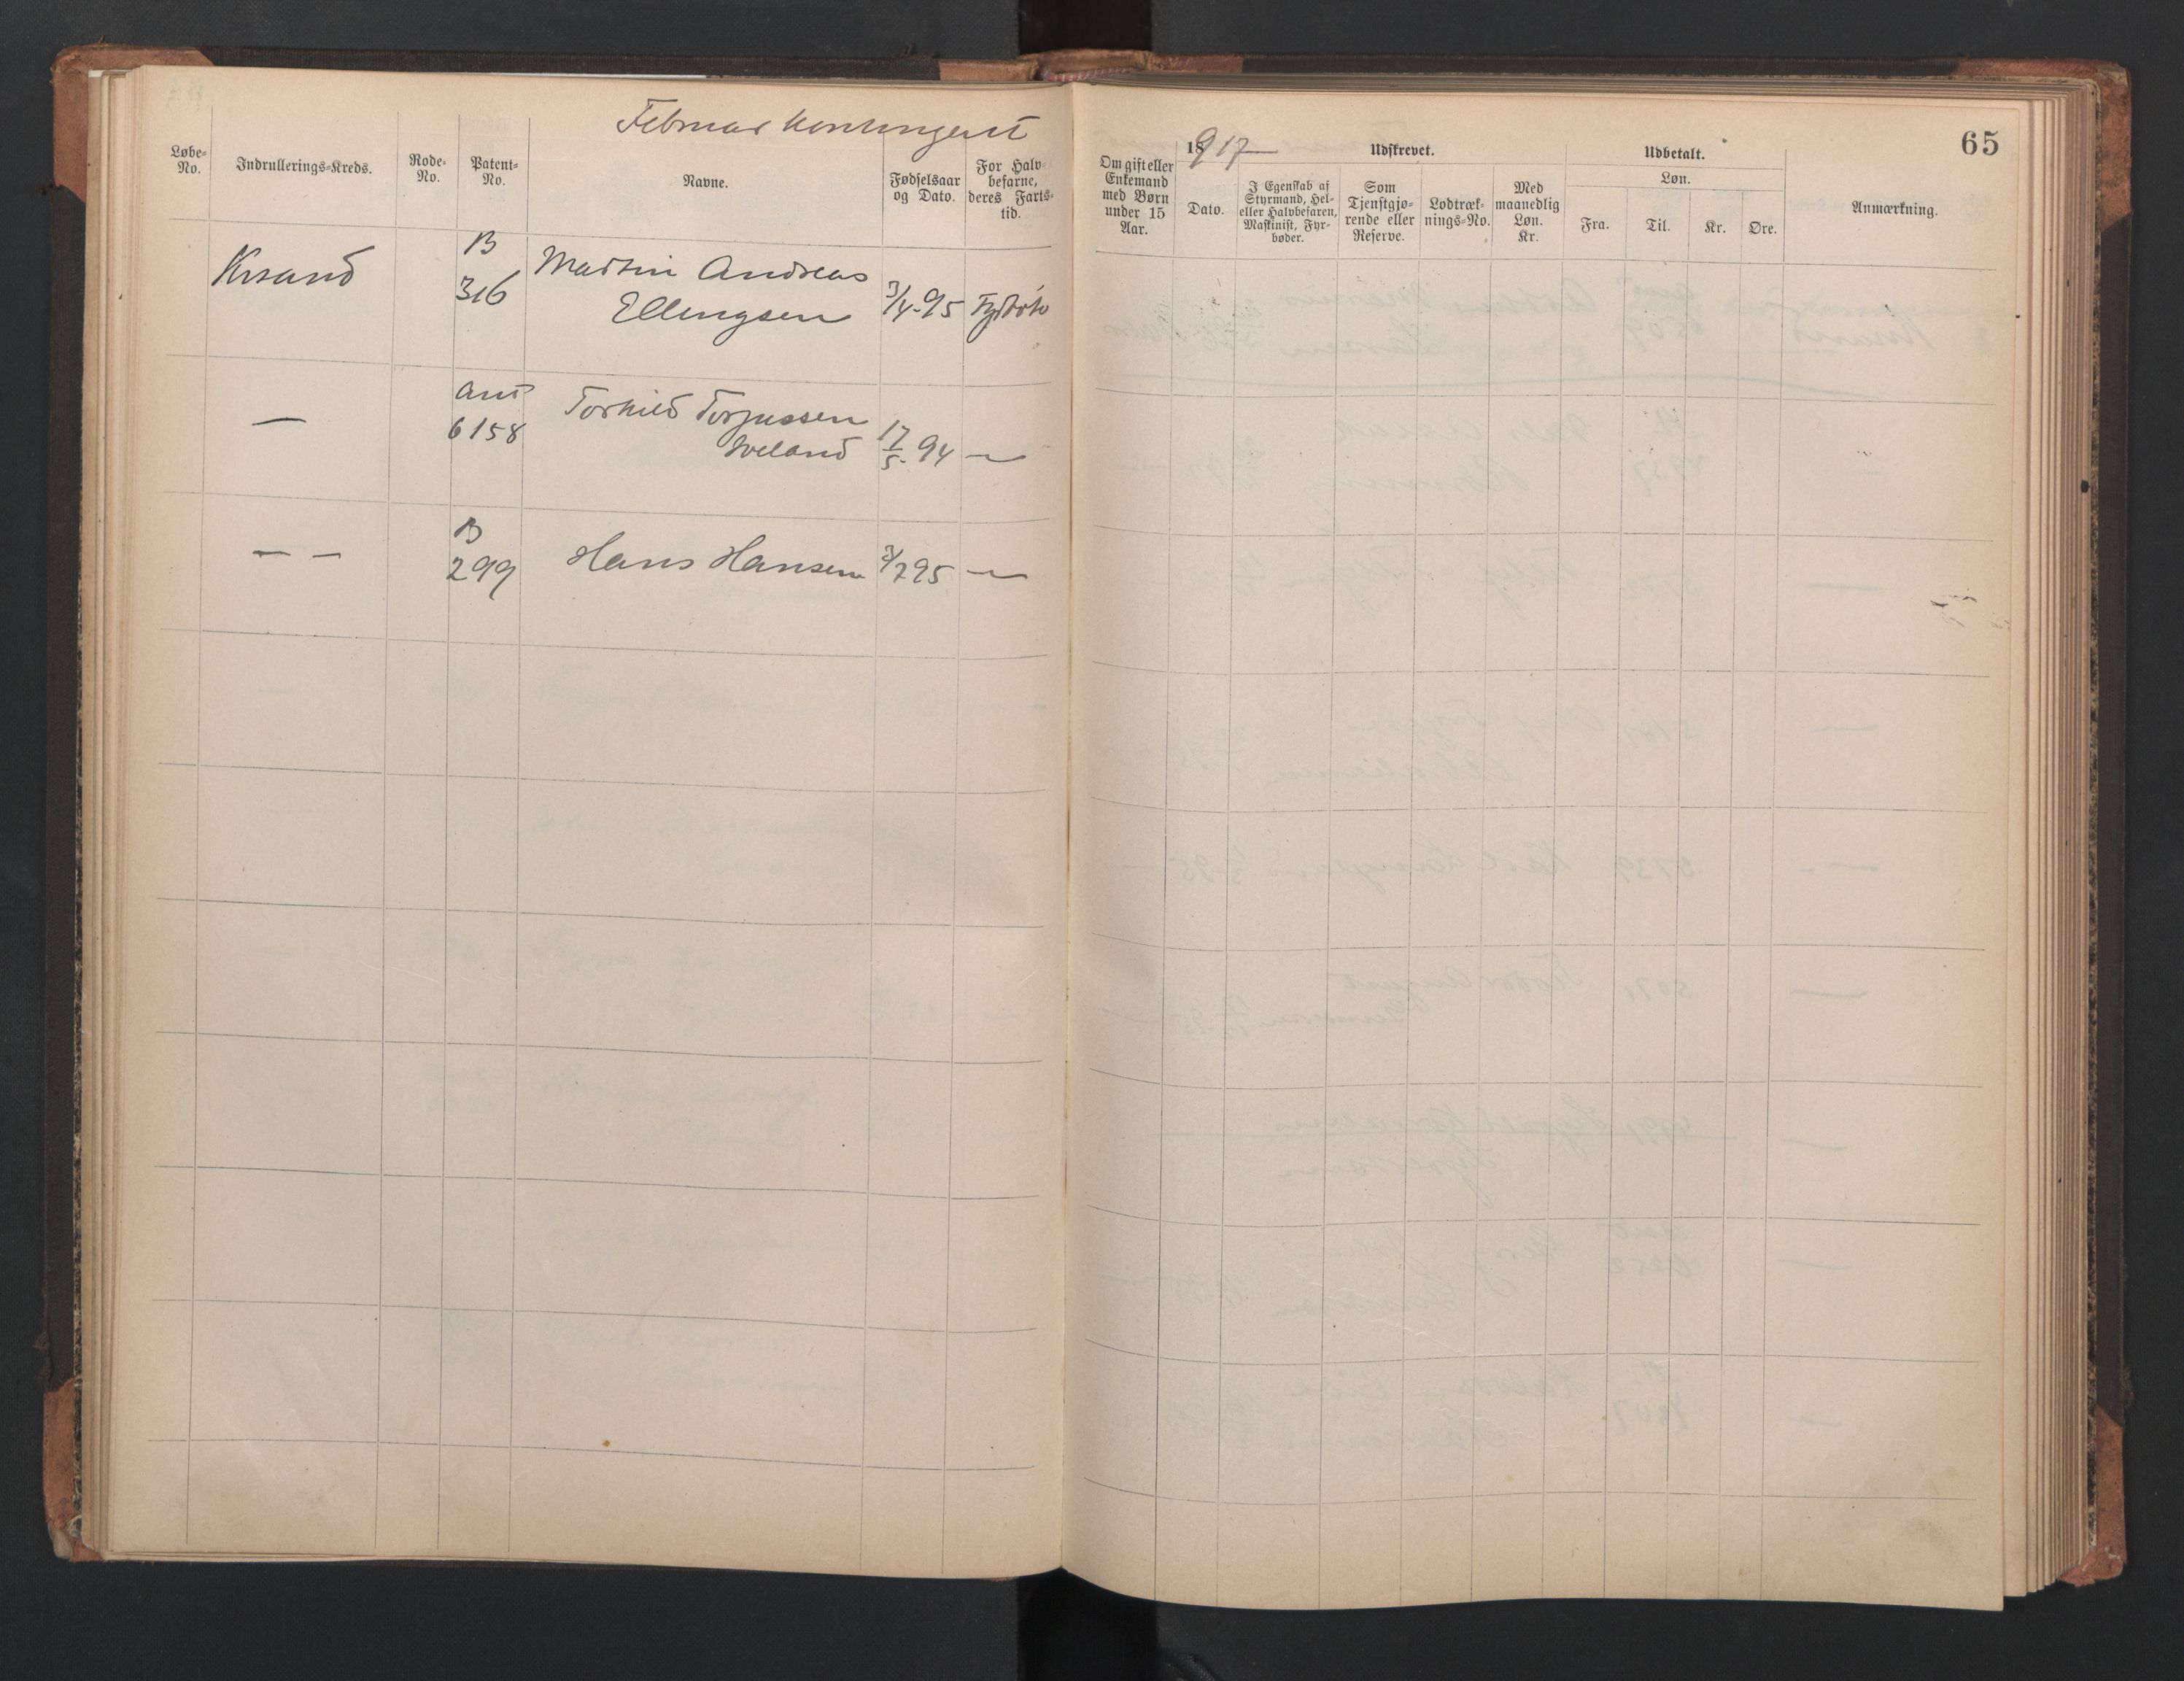 Februar kontingent
Løbe-No.
Indrullerings-Kreds.
Rode-No.
Patent-No.
Navne.
Fødselsaar og Dato.
For Halvbefarne, deres Fartstid.
Krsand
B
316
Martin Andreas
Ellingsen
3/4-95
—
Ant
6158
Torkild Torjussen
Iveland
17/5-94 —
— —
B
299
Hans Hansen
3/7 95 —
65
Om gift eller Enkemand med Børn under 15 Aar.
18917
Dato.
Udskrevet.
I Egenskab af Styrmand, Hel- eller Halvbefaren, Maskinist, Fyrbøder.
Som Tjenstgjørende eller Reserve.
Lodtræknings-No.
Med maanedlig Løn. Kr.
Udbetalt.
Løn.
Fra.
Til.
Kr.
Øre.
Anmærkning.